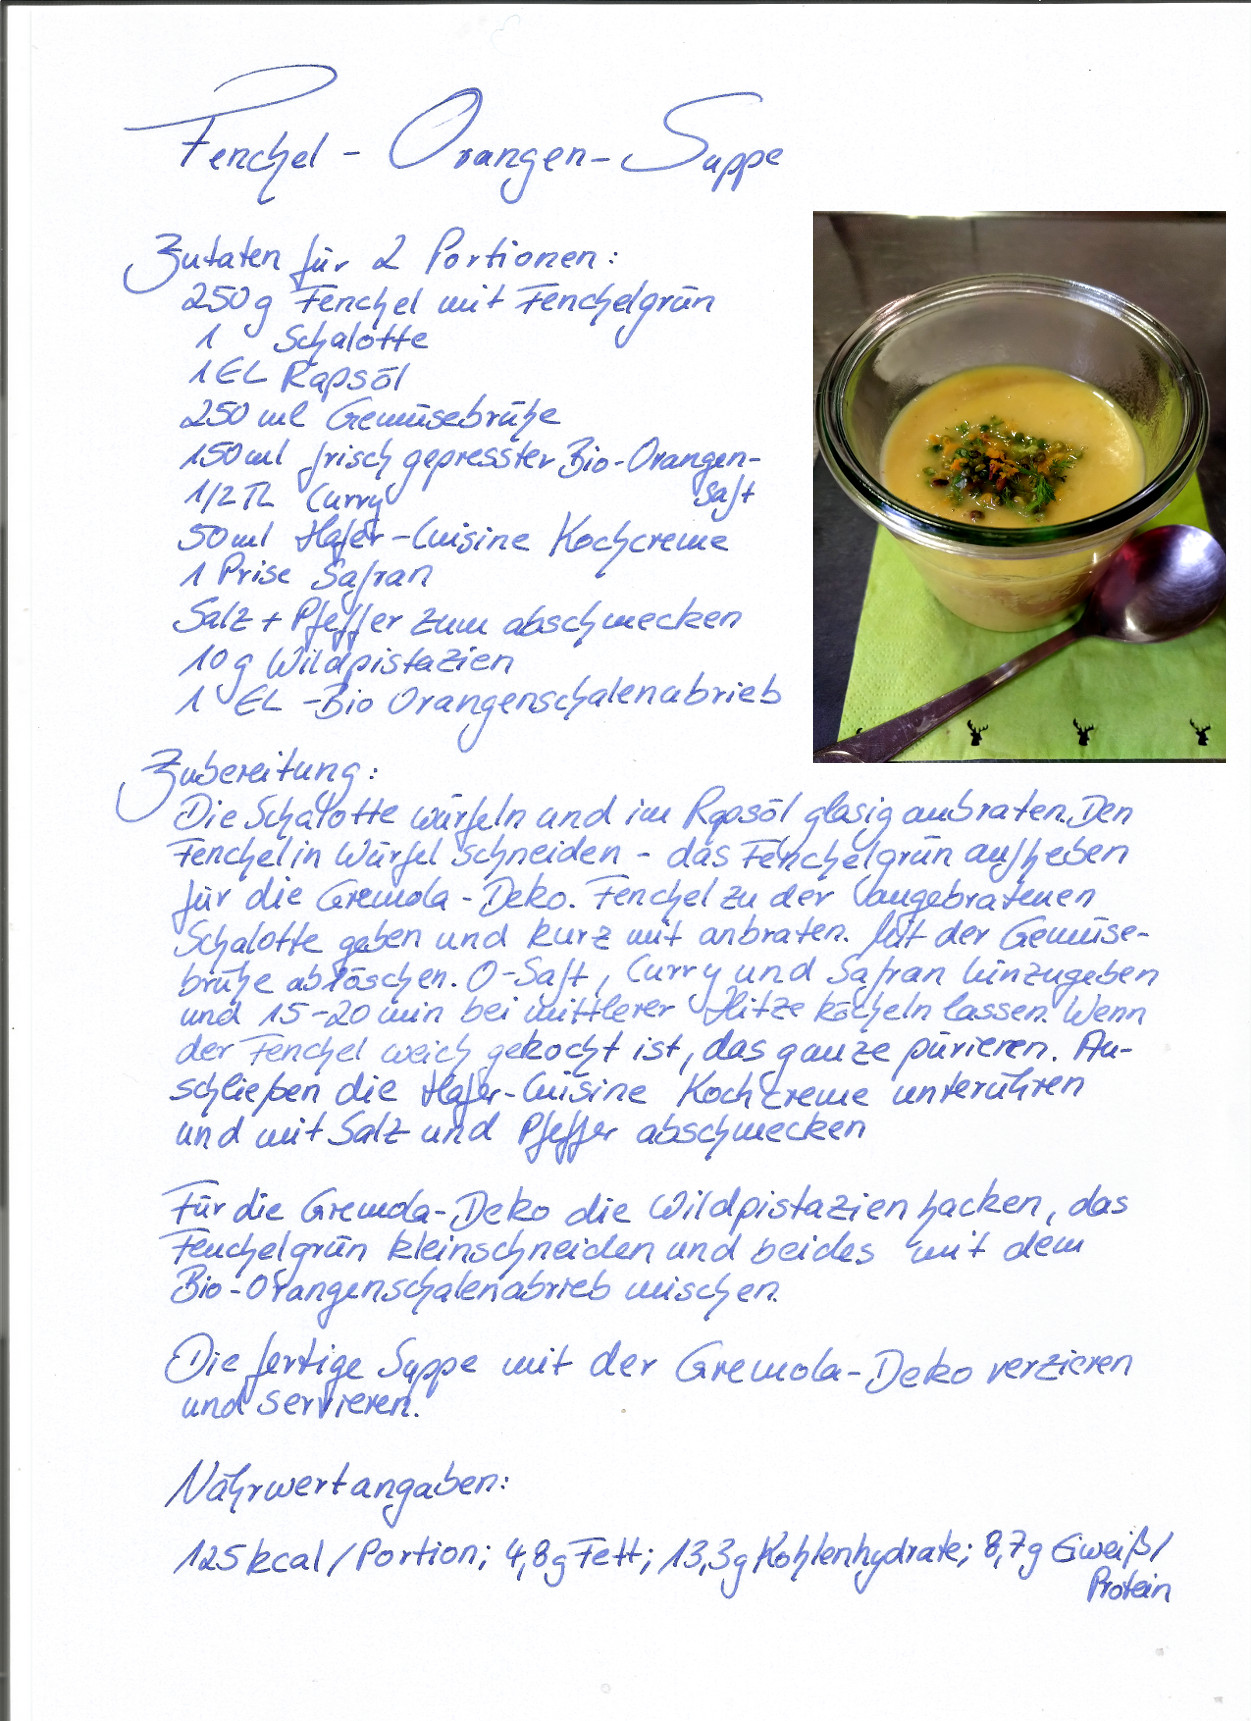 Fenchel - Orangen - Suppe
Zutaten für 2 Portionen:
250 g Fenchel mit Fenchelgrün
1 Schalotte
1 EL Rapsöl
250 ml Gemüsebrühe
150 ml frisch gepresster Bio-Orangen-
saft
1/2 TL Curry
50 ml Hafer-Cuisine Kochcreme
1 Prise Safran
Salz + Pfeffer zum abschmecken
10 g Wildpistazien
1 EL -Bio Orangenschalenabrieb
Zubereitung:
Die Schalotte würfeln und im Rapsöl glasig anbraten. Den
Fenchel in Würfel schneiden - das Fenchelgrün aufheben
für die Gremola - Deko. Fenchel zu der angebratenen
Schalotte geben und kurz mit anbraten. Mit der Gemüse-
brühe ablöschen. O-Saft, Curry und Safran hinzugeben
und 15-20 min bei mittlerer Hitze köcheln lassen. Wenn
der Fenchel weich gekocht ist, das ganze pürieren. An-
schließen die Hafer-Cuisine Kochcreme unterühren
und mit Salz und Pfeffer abschmecken
Für die Gremola-Deko die Wildpistazien hacken, das
Fenchelgrün kleinschneiden und beides mit dem
Bio-Orangenschalenabrieb mischen.
Die fertige Suppe mit der Gremola-Deko verzieren
und servieren.
Nährwertangaben:
125 kcal/Portion; 4,8g Fett; 13,3g Kohlenhydrate; 8,7g Eiweiß/
Protein